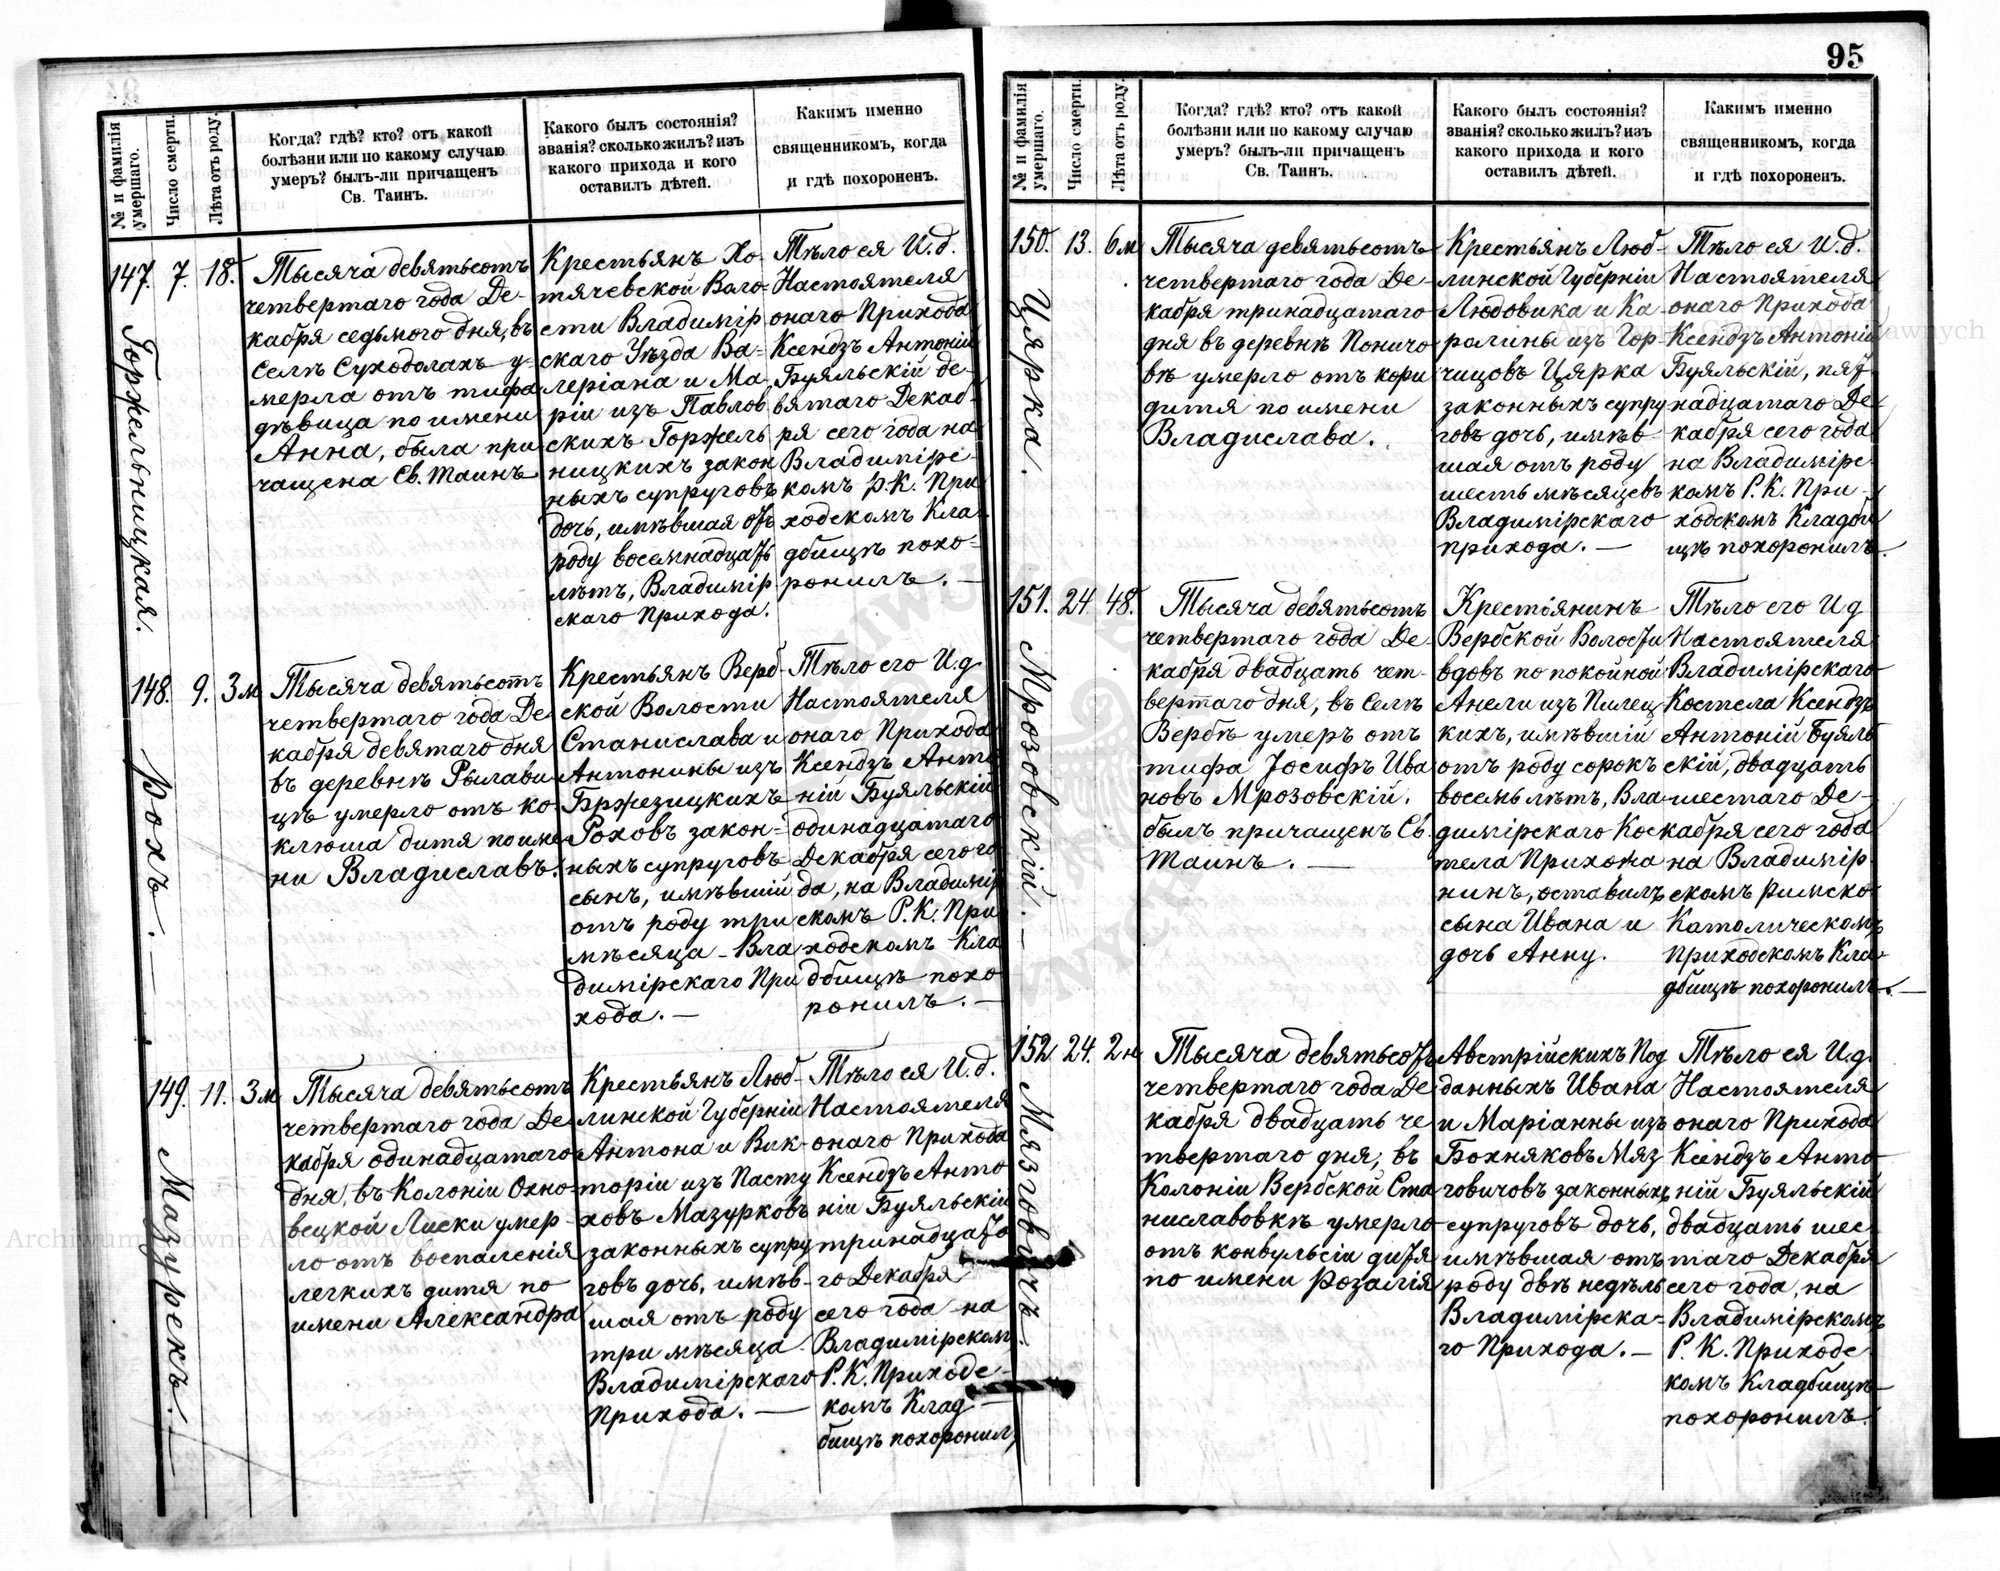 95
№ и фамилія умершаго.
Число смерти.
Лѣта отъ роду.
Когда? гдѣ? кто? отъ какой
болѣзни или по какому случаю
умеръ? былъ-ли причащенъ
Св. Таинъ.
Какого былъ состоянія?
званія? сколько жилъ? изъ
какого прихода и кого
оставилъ дѣтей.
Какимъ именно
священникомъ, когда
и гдѣ похороненъ.
147. 7. 18.
Горжельницкая.
Тысяча девятьсотъ
четвертаго года Де-
кабря седьмого дня, въ
Селѣ Суходолахъ у-
мерла отъ тифа
дѣвица по имени
Анна, была при
чащена Св. Таинъ
Крестьянъ Хо-
тячевской Воло-
сти Владимір
скаго Уѣзда Ва-
леріана и Ма-
ріи изъ Павлов
скихъ Горжель
ницкихъ закон
ныхъ супруговъ
дочь, имѣвшая отъ
роду восемнадцать
лѣтъ, Владимір
скаго Прихода.
Тѣло ея И. д.
Настоятеля
онаго Прихода
Ксендзъ Антоній
Буяльскій де-
вятаго Декаб-
ря сего года на
Владимірс-
комъ р. К. При
ходскомъ Кла-
дбищѣ похо-
ронилъ. —
148. 9. 3 м
Рохъ. —
Тысяча девятьсотъ
четвертаго года Де
кабря девятаго дня
въ деревнѣ Рылави
цѣ умерло отъ ко
клюша дитя по име
ни Владиславъ.
Крестьянъ Верб-
ской Волости
Станислава и
Антонины изъ
Бржезицкихъ
Роховъ закон-
ныхъ супруговъ
сынъ, имѣвшій
отъ роду три
мѣсяца - Вла
димірскаго При
хода. —
Тѣло его И. д
Настоятеля
онаго Прихода
Ксендзъ Анто
ній Буяльскій
одинадцатаго
Декабря сего го
да, на Владимір
скомъ Р. К. При
ходскомъ Кла
дбищѣ похо
ронилъ. —
149. 11. 3 м
Мазурекъ. —
Тысяча девятьсотъ
четвертаго года Де
кабря одинадцатаго
дня, въ Колоніи Охно-
вецкой Лиски умер-
ло отъ воспаленія
легкихъ дитя по
имени Александра
Крестьянъ Люб-
линской Губерніи
Антона и Вик-
торіи изъ Пасту
ховъ Мазурковъ
законныхъ супру
говъ дочь, имѣв-
шая отъ роду
три мѣсяца
Владимірскаго
Прихода. —
Тѣло ея И. д.
Настоятеля
онаго Прихода
Ксендзъ Анто
ній Буяльскій
тринадцато
го Декабря
сего года на
Владимірскомъ
Р. К. Приходс-
комъ Клад-
бищѣ похоронил,
№ и фамилія умершаго.
Число смерти.
Лѣта отъ роду.
Когда? гдѣ? кто? отъ какой
болѣзни или по какому случаю
умеръ? былъ-ли причащенъ
Св. Таинъ.
Какого былъ состоянія?
званія? сколько жилъ? изъ
какого прихода и кого
оставилъ дѣтей.
Какимъ именно
священникомъ, когда
и гдѣ похороненъ.
150. 13. 6 м
Цярка.
Тысяча девятьсотъ
четвертаго года Де-
кабря тринадцатаго
дня въ деревнѣ Поничо
вѣ умерло отъ кори
дитя по имени
Владислава.
Крестьянъ Люб-
линской Губерніи
Людовика и Ка
ролины изъ Гор-
чицовъ Цярка
законныхъ супру
говъ дочь, имѣв-
шая отъ роду
шесть мѣсяцевъ
Владимірскаго
прихода. —
Тѣло ея И. д.
Настоятеля
онаго Прихода
Ксендзъ Антоній
Буяльскій, пят
надцатаго Де-
кабря сего года
на Владимірс-
комъ Р. К. При-
ходскомъ Кладби
щѣ похоронилъ.
151. 24. 48.
Мрозовскій. —
Тысяча девятьсотъ
четвертаго года Де-
кабря двадцать чет-
вертаго дня, въ Селѣ
Вербѣ умеръ отъ
тифа Іосифъ Ива
новъ Мрозовскій.
былъ причащенъ Св.
Таинъ. —
Крестьянинъ
Вербской Волости
вдовъ по покойной
Анели изъ Пилец
кихъ, имѣвшій
отъ роду сорокъ
восемь лѣтъ, Вла-
димірскаго Кос
тела Прихожа
нинъ, оставилъ
сына Ивана и
дочь Анну.
Тѣло его И д
Настоятеля
Владимірскаго
Костела Ксендзъ
Антоній Буяль
скій, двадцать
шестаго Де-
кабря сего года
на Владимір
скомъ римско-
Католическомъ
Приходскомъ Кла-
дбищѣ похоронилъ. —
152. 24. 2 н
Мязговичъ.
Тысяча девятьсотъ
четвертаго года Де
кабря двадцать че
твертаго дня, въ
Колоніи Вербской Ста
ниславовкѣ умерло
отъ конвульсіи дитя
по имени Розалія
Австрійскихъ Под
данныхъ Ивана
и Маріанны изъ
Бохняковъ Мяз
говичовъ законныхъ
супруговъ дочь,
имѣвшая отъ
роду двѣ недѣли
Владимірска-
го Прихода. —
Тѣло ея И. д.
Настоятеля
онаго Прихода
Ксендзъ Анто
ній Буяльскій
двадцать шес
таго Декабря
сего года, на
Владимірскомъ
Р. К. Приходс
комъ Кладбищѣ
похоронилъ.